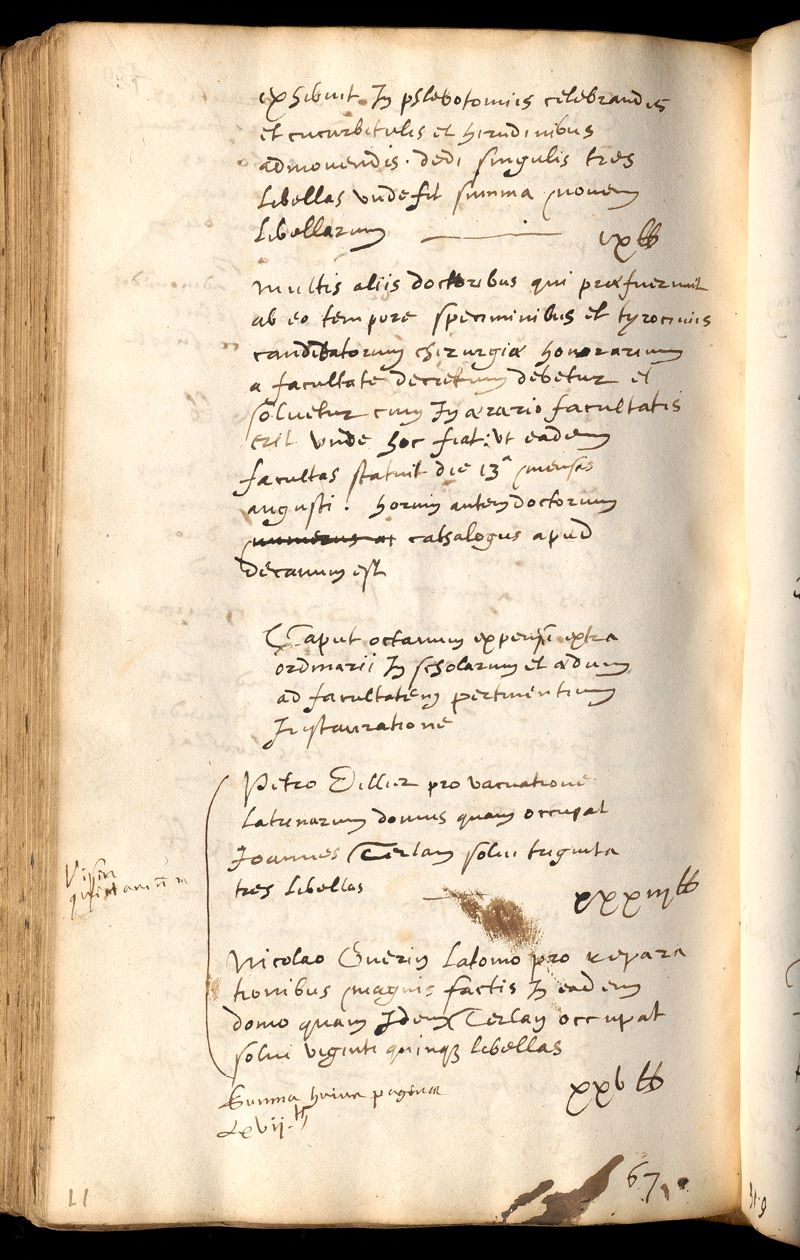 exhibuit In phlebotomiis celebrandis
et cucurbitulis et hirudinibus
admovendis. dedi singulis tres
libellas unde fit summa novem
libellarum ix ℔
Multis aliis doctoribus qui præfuerunt
ab eo tempore speciminibus et tyrociniis
candidatorum chirurgiæ honorarium
a facultate decretum debetur et
solvetur cum In ærario facultatis
erit unde hoc fiat: ut eadem
facultas statuit die 13ª mensis
augusti. horum autem doctorum
numerus at cathalogus apud
decanum est
Caput octavum expensi extra
ordinarii In scholarum et ædium
ad facultatem pertinentium
Instauratione
Petro Dillier pro vacuatione
latrinarum domus quam occupat
Joannes Terlan solui triginta
tres libellas xxxiii ℔
Nicolao Guerin latomo pro repara
tionibus magnis factis In eadem
domo quam Idem Terlan occupat
solui viginti quinq3 libellas
xxv ℔
Summa huius paginæ
Lxvii. ℔
67